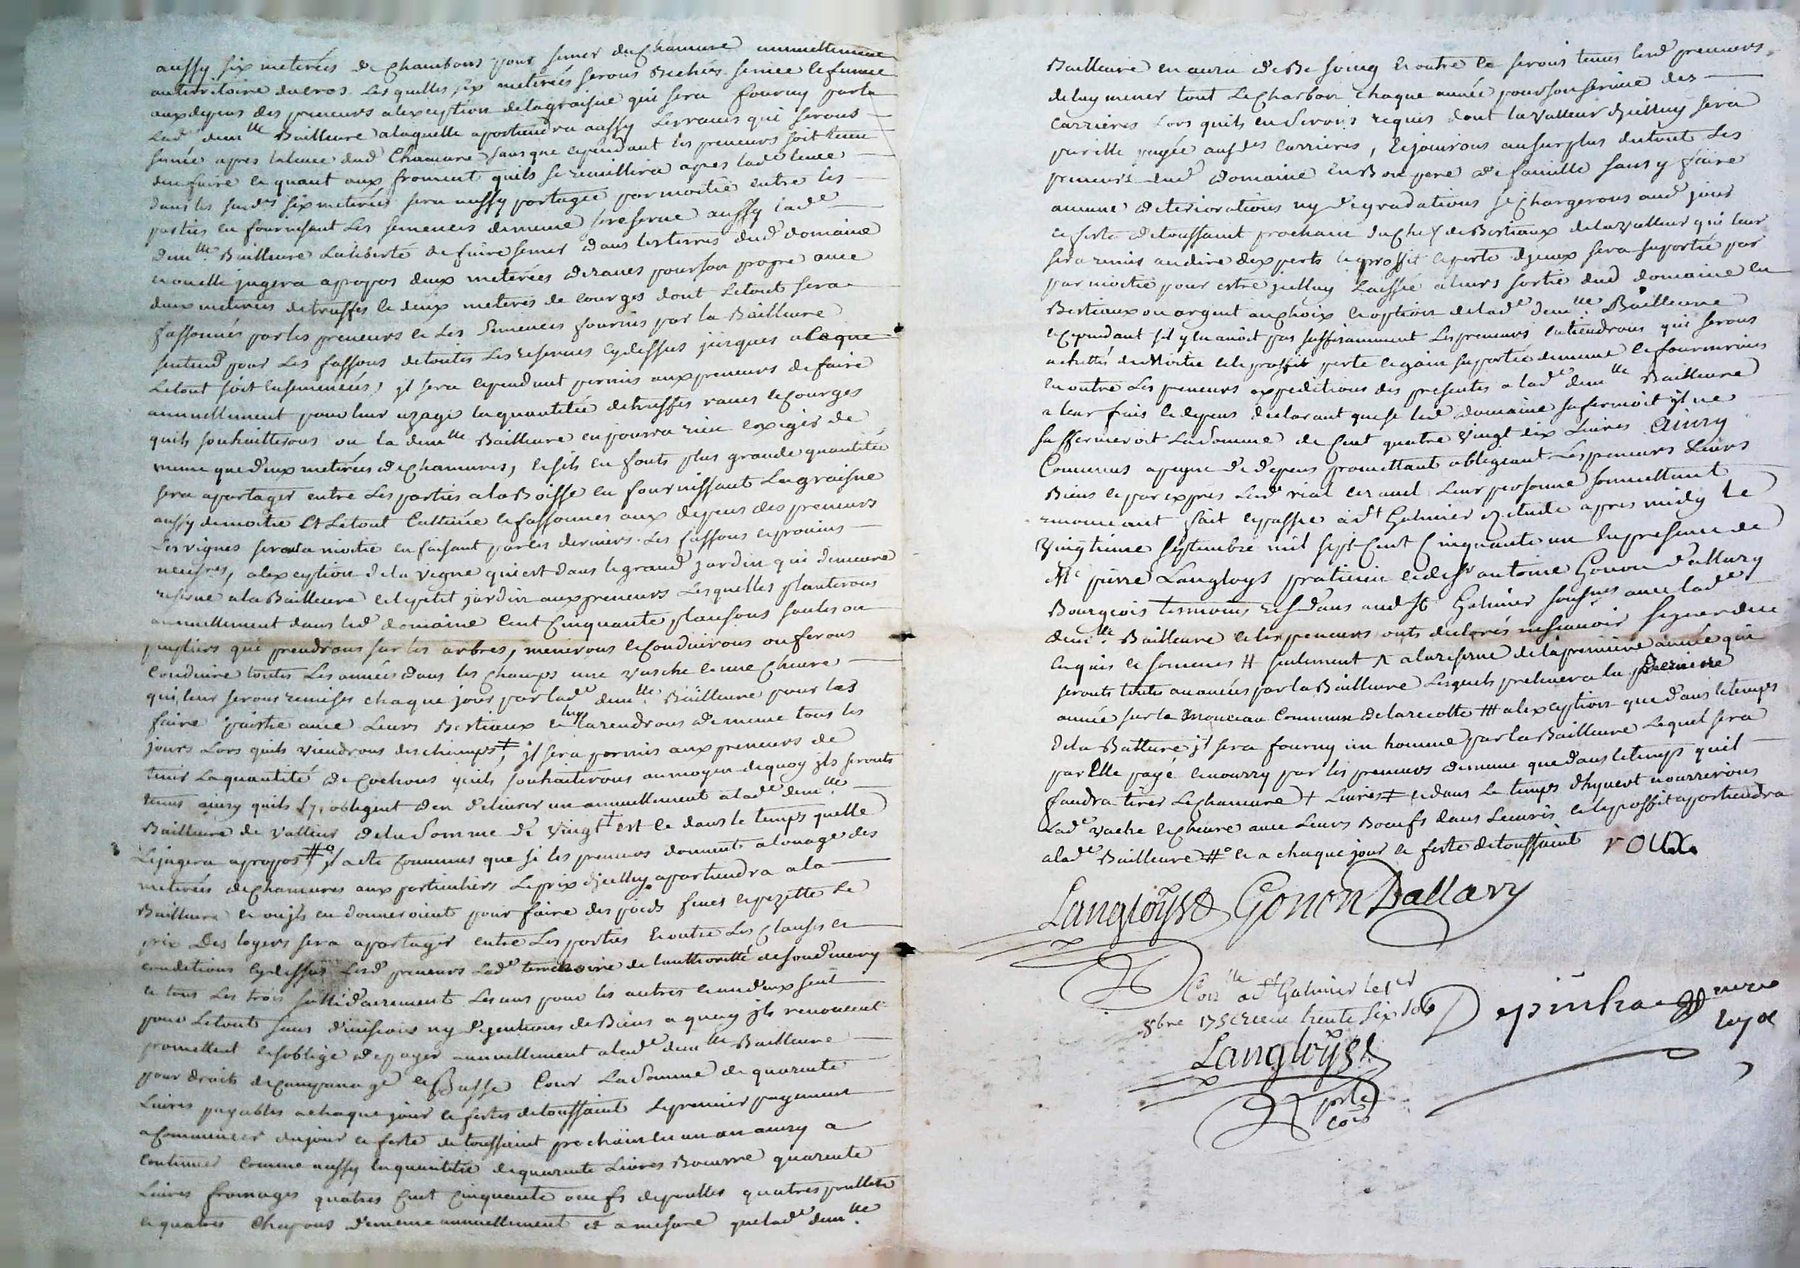 aussy six meterées de Chambons pour semer du Chanvre annuellement
au territoire du cros. Lesquelles six meterées serons Bechés semée et fumée
aux depens des preneurs a lexception de la graisne qui sera fourny par la
Lad.e dem.lle Bailleure a laquelle apartiendra aussy Les raves qui serons
semée apres la levée dud. Chanvre sans que cependant les preneurs soit tenu
den faire et quant aux froment quils se recuillira apres lad.e levée
dans les susd.es six meterées sera aussy partagée par moitié entre les
parties en fournisant Les semences de meme se reserve aussy lad.e
dem.lle Bailleure La liberté de faire semer dans les terres dud. domaine
ou elle jugera apropos deux meterées de raves pour son propre avec
deux meterées de truffes et deux meterés de courges dont Le tout sera
fassonnés par les preneurs et Les Semences fournis par la Bailleure
pour Les fassons de toutes Les reserves cy dessus jusques a ce que
Le tout soit ensemencés, jl sera cependant permis aux preneurs de faire
annuellement pour leur uzage la quantitée de truffes raves et courges
quils souhaitterons ou la dem.lle Bailleure en pourra rien exiger de
meme que deux meterées de Chanvres, et sils en fonts plus grande quantitée
sera a partager entre Les parties a la Boisse en fournissant La graisne
aussy de moitie Et Le tout Cultivée et fassonnes aux depens des preneurs
Les vignes sera a la moitie en faisant par ces derniers Les fassons et provins
neufves, a lexception de la vigne qui est dans le grand jardin qui demeure
reserve a la Bailleure et le petit jardin aux preneurs Lesquelles planterons
annuellement dans led. domaine Cent Cinquante planfons saules ou
pupliers que prendrons sur les arbres, menerons et Conduirons ou ferons
Conduire toutes Les années dans les champs une vasche et une Chevre
qui leur serons remises chaque jours par lad.e dem.lle Bailleure pour les
faire paistre avec Leurs Bestieaux et luy la rendrons de meme tous les
jours Lors quils viendrons des champs ‡, jl sera permis aux preneurs de
tenir La quantité de Cochons quils souhaiterons au moyen de quoy jls seronts
tenus ainsy quils sy obligent den delivrer un annuellement a lad.e dem.lle
Bailleure de valleur de la Somme de vingt † et ce dans le temps quelle
Le jugera apropos #° jl a ete Convenus que si les preneurs donnent a louage des
meterées de Chanvres aux particuliers Le prix djcelluy apartiendra a la
Bailleure et ou jls en donneroient pour faire des pieds fines et pezette Le
prix Des loyers sera a partager entre Les parties Et outre Les Clauses et
conditions cy dessus Lesd. preneurs Lad.e de lauthorité de soud. mary
et tous Les trois sollidairement Les uns pour les autres et un deux seul
pour Le tout sans divisions ny dizcutions de Biens a quoy jls renoncent
promettent et soblige de payer annuellement a lad.e dem.lle Bailleure
pour droits de Campanage et Basse Cour La Somme de quarente
Livres payables a chaque jour et festes de toussaint Le premier payement
a Commencer du jour et feste de toussaint prochain en un an ainsy a
Continuer comme aussy La quantitée de quarente Livres Beurre quarente
Livres fromages quatres Cent Cinquante oeufs de poulles quatres poullets
et quatres Chapons de meme annuellement et a mesure que lad.e dem.lle
Bailleure en aura de Be soing Et outre ce serons tenus lesd. preneurs
de luy mener tout Le Charbon chaque année pour son service des
carrieres Lors quils en Serons requis dont la valleur djcelluy sera
par elle payée ausd.es Carrieres, et jouirons au surplus du tout Les
preneurs dud. domaine en Bon pere de famille sans y faire
aucune deteriorations ny degradations se Chargerons aud. jour
et feste de toussaint prochain du Chef de Bestiaux de la valleur qui leur
sera remis au dire dexperts et le proffit et perte djceux sera suportée par
par moitie pour estre jcelluy Laissée a leurs sortie dud. domaine en
Bestieaux ou argent au choix et option de lad.e dem.lle Bailleure
et cependant sil y en avoit pas suffisamment Les preneurs en tiendrons qui serons
achettés de Moitie et le proffit perte et gain suportée de meme et fournirons
en outre Les preneurs expeditions des presentes a lad.e dem.lle Bailleure
a leur frais et depens declarant que se led. domaine saffermoit jl ne
saffermeroit La Somme de Cent quatre vingt dix Livres Ainsy
Convenus a peyne de depens promettant obligeant Les preneurs Leurs
Biens et par expres Led. rial et ravel Leur personne soumettant
renonceant fait et passée a S.t Galmier Etude apres midy Le
vingtieme Septembre mil sept Cent Cinquante un En presence de
M.e pierre Langloys praticien et de S.r antoine Gonon dallary
Bourgeois tesmoins rezidans aud. S.t Galmier soussignes avec lad.e
dem.lle Bailleure et les preneurs onts declarés ne scavoir signer de ce
enquis et sommes # seulement ^ a la reserve de la premiere année qui
seronts touts avancés par la Bailleure Lesquels prelevera la premiere
année sur le Monceau Commun de la recolte # a lexception que dans le temps
de la Batture jl sera fourny un homme par la Bailleure Lequel sera
par Elle payé et nourry par les preneurs de meme que dans le temps quil
faudra tirer Le Chanvre † Livres ‡ et dans Le temps dhyvert nourrirons
Lad.e vache et Chevre avec Leurs Boeufs dans Lecurie et le proffit apartiendra
a lad.e Bailleure #° et a chaque jour et feste de toussaint roux
Langloys Gonon Dallary
Co.lle a S.t Galmier le 1er
8bre 1751 Receu trente six sols
Depinhac no.re
royal
Langloys